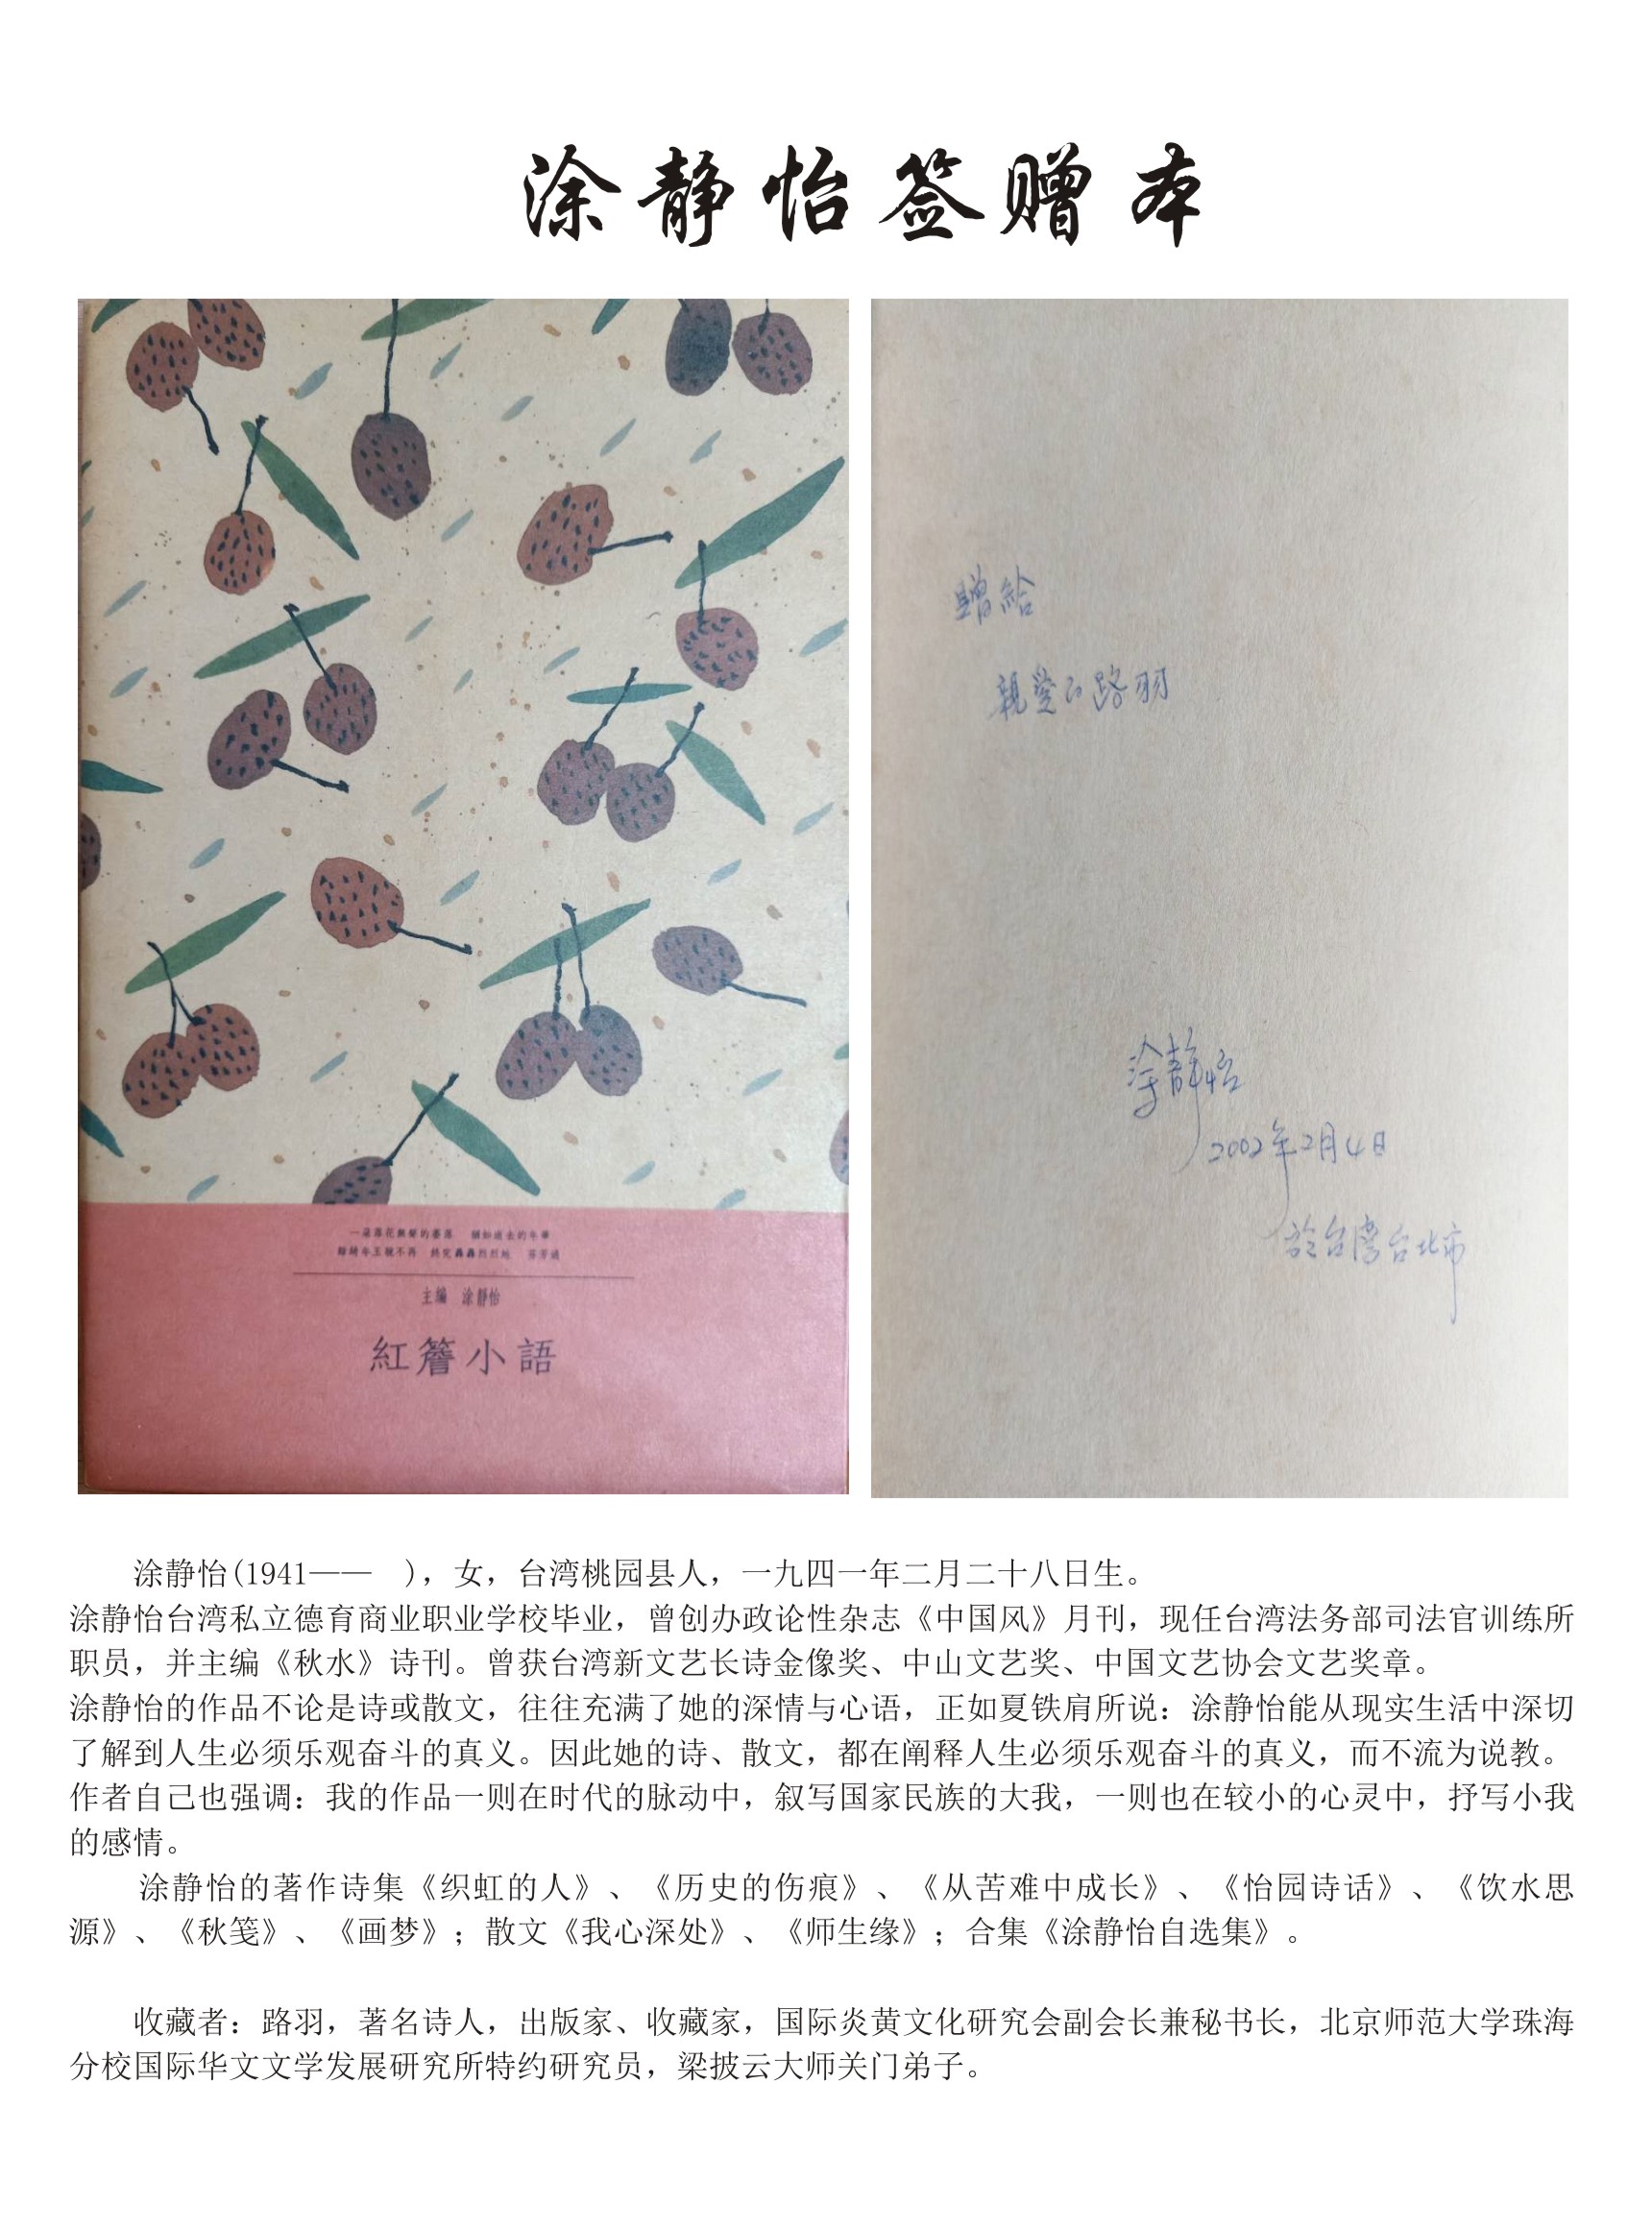 涂静怡签赠本
一朵落花無聲的萎落　猶如逝去的年華
主編　涂靜怡
紅簷小語
贈給
親愛的路羽
涂靜怡
2002年2月4日
於台灣台北市
涂静怡(1941——　)，女，台湾桃园县人，一九四一年二月二十八日生。
涂静怡台湾私立德育商业职业学校毕业，曾创办政论性杂志《中国风》月刊，现任台湾法务部司法官训练所
职员，并主编《秋水》诗刊。曾获台湾新文艺长诗金像奖、中山文艺奖、中国文艺协会文艺奖章。
涂静怡的作品不论是诗或散文，往往充满了她的深情与心语，正如夏铁肩所说：涂静怡能从现实生活中深切
了解到人生必须乐观奋斗的真义。因此她的诗、散文，都在阐释人生必须乐观奋斗的真义，而不流为说教。
作者自己也强调：我的作品一则在时代的脉动中，叙写国家民族的大我，一则也在较小的心灵中，抒写小我
的感情。
涂静怡的著作诗集《织虹的人》、《历史的伤痕》、《从苦难中成长》、《怡园诗话》、《饮水思
源》、《秋笺》、《画梦》；散文《我心深处》、《师生缘》；合集《涂静怡自选集》。
收藏者：路羽，著名诗人，出版家、收藏家，国际炎黄文化研究会副会长兼秘书长，北京师范大学珠海
分校国际华文文学发展研究所特约研究员，梁披云大师关门弟子。